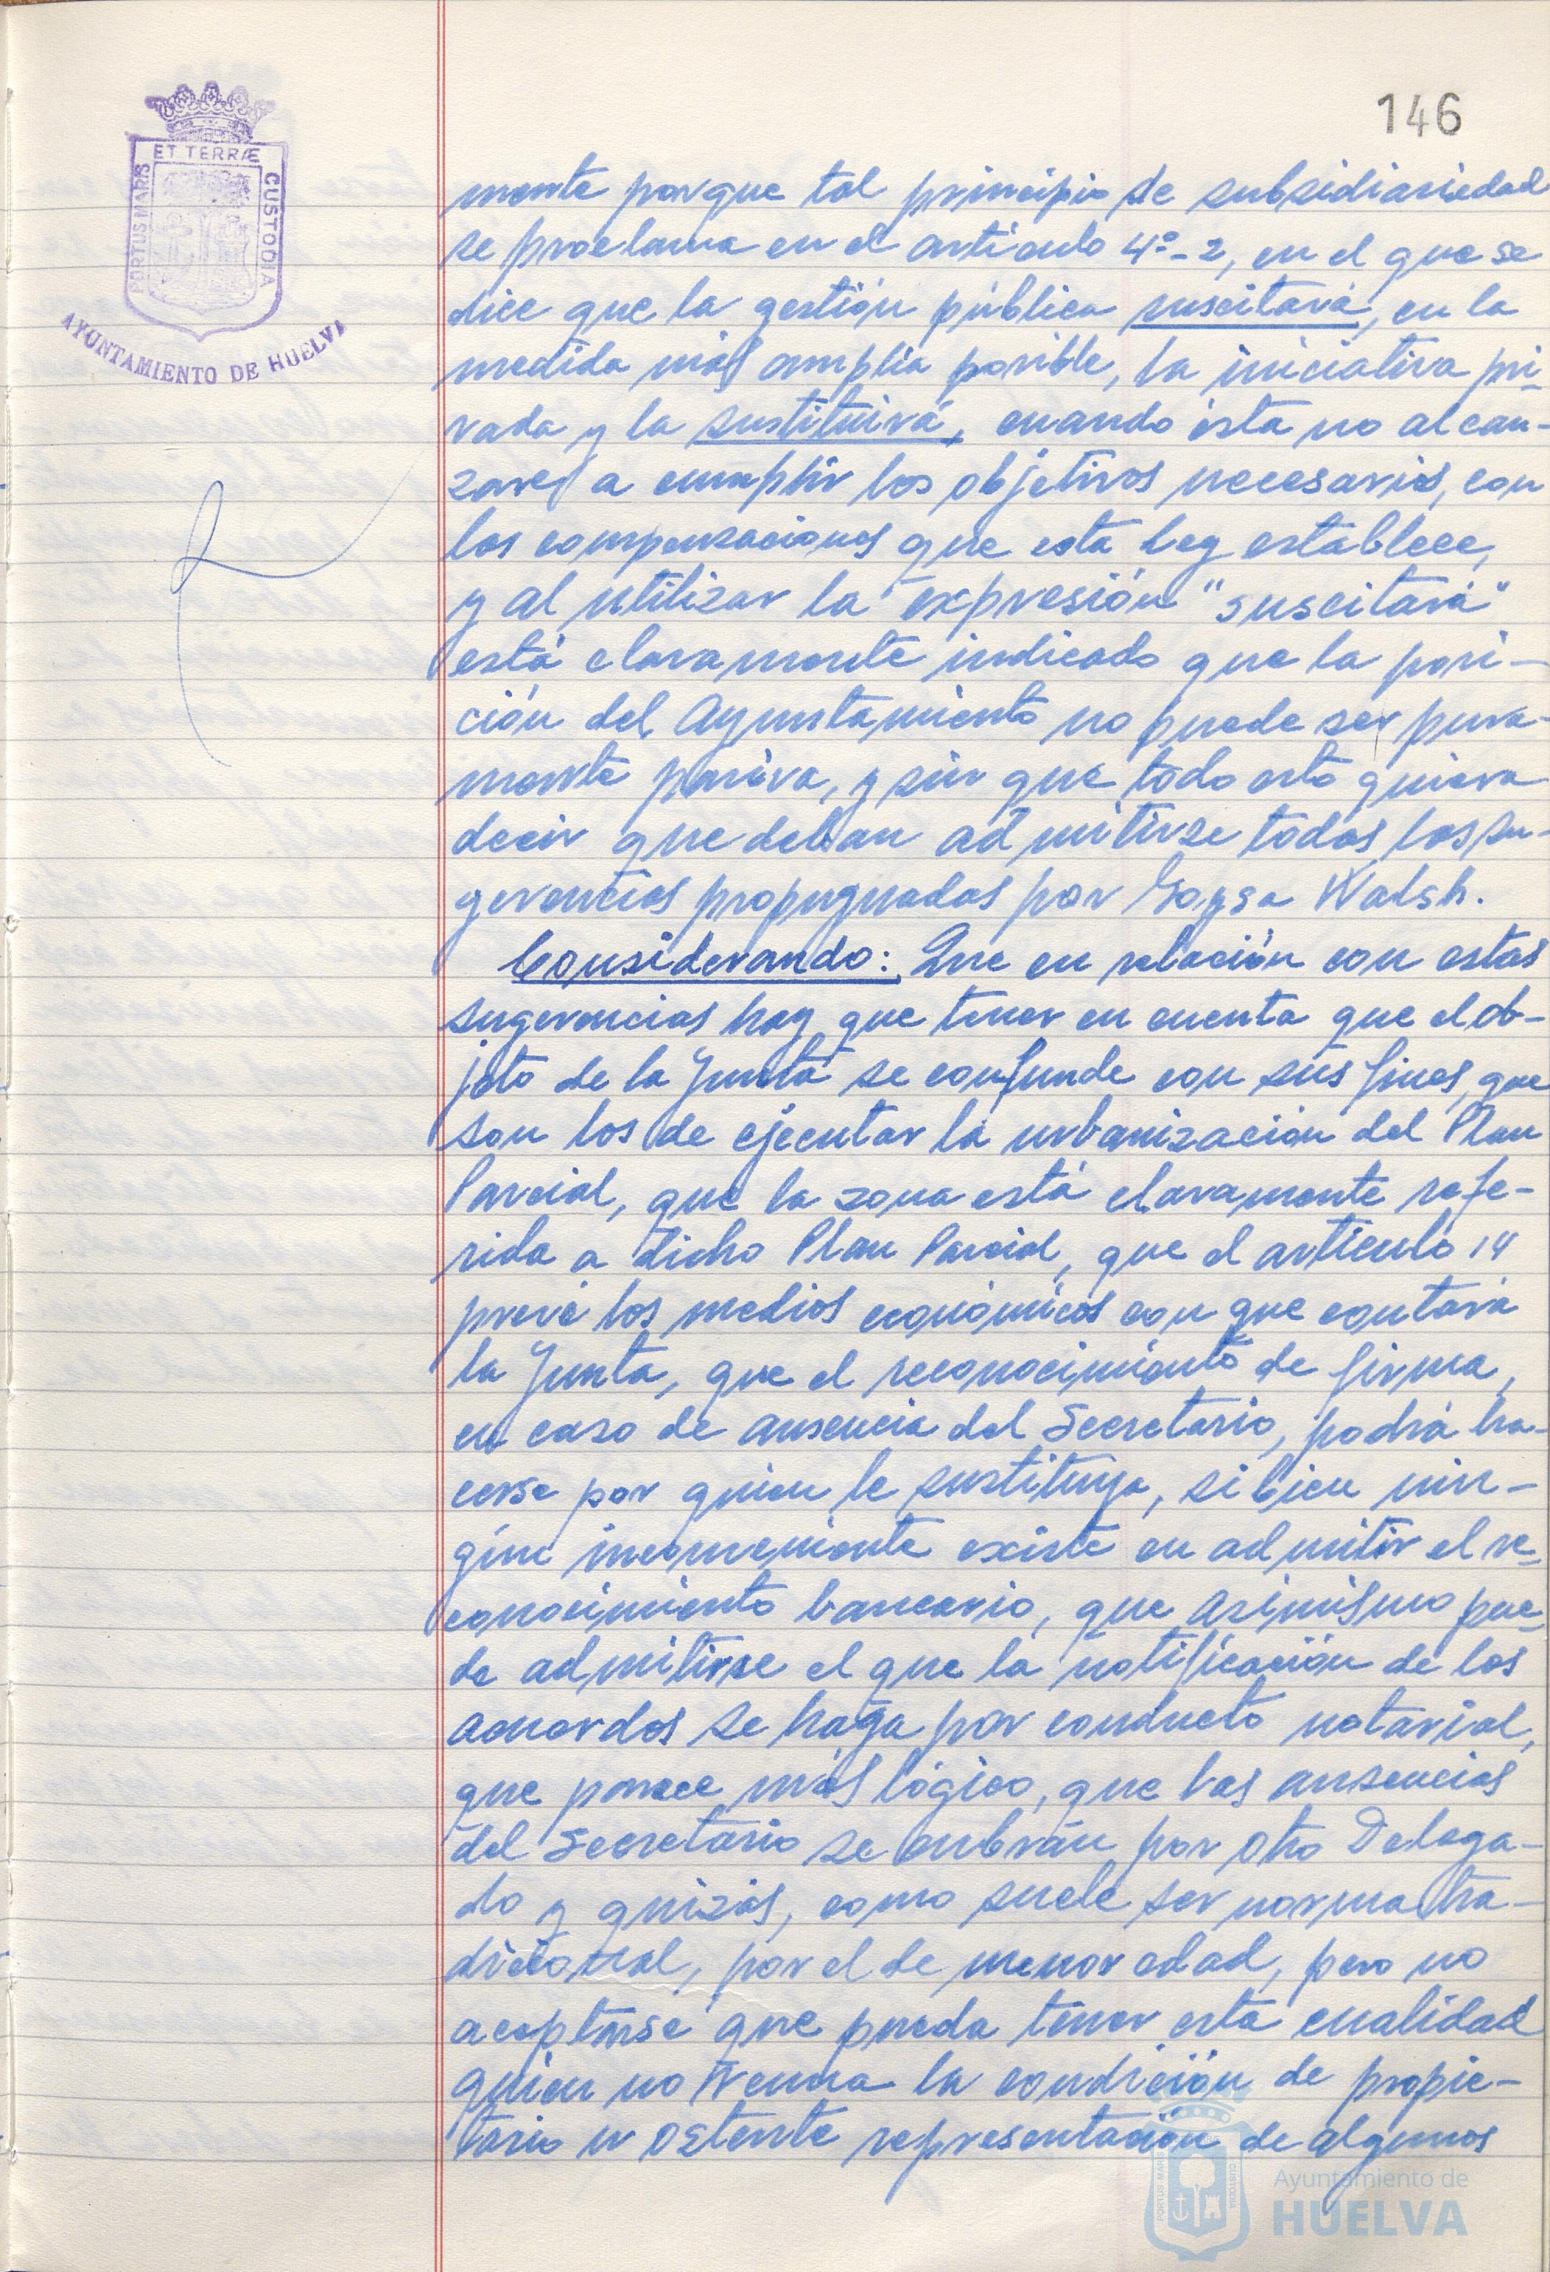 146
ET TERRÆ
PORTUS MARIS
CUSTODIA
AYUNTAMIENTO DE HUELVA
mente porque tal principio de subsidiariedad
se proclama en el artículo 4º-2, en el que se
dice que la gestión pública suscitará, en la
medida más amplia posible, la iniciativa pri-
vada y la sustituirá, cuando ésta no alcan-
zare a cumplir los objetivos necesarios, con
las compensaciones que esta Ley establece,
y al utilizar la expresión "suscitará"
está claramente indicado que la posi-
ción del Ayuntamiento no puede ser pura-
mente pasiva, y sin que todo esto quiera
decir que deban admitirse todas las su-
gerencias propugnadas por Goysa Walsh.
Considerando: Que en relación con estas
sugerencias hay que tener en cuenta que el ob-
jeto de la Junta se confunde con sus fines, que
son los de ejecutar la urbanización del Plan
Parcial, que la zona está claramente refe-
rida a dicho Plan Parcial, que el artículo 14
prevé los medios económicos con que contará
la Junta, que el reconocimiento de firma,
en caso de ausencia del Secretario, podrá ha-
cerse por quien le sustituya, si bien nin-
gún inconveniente existe en admitir el re-
conocimiento bancario, que asimismo pue-
de admitirse el que la notificación de los
acuerdos se haga por conducto notarial,
que parece más lógico, que las ausencias
del Secretario se cubrán por otro Delega-
do y quizás, como suele ser norma tra-
dicional, por el de menor edad, pero no
aceptarse que pueda tener esta cualidad
quien no tenga la condición de propie-
tario u ostente representación de algunos
Ayuntamiento de
HUELVA